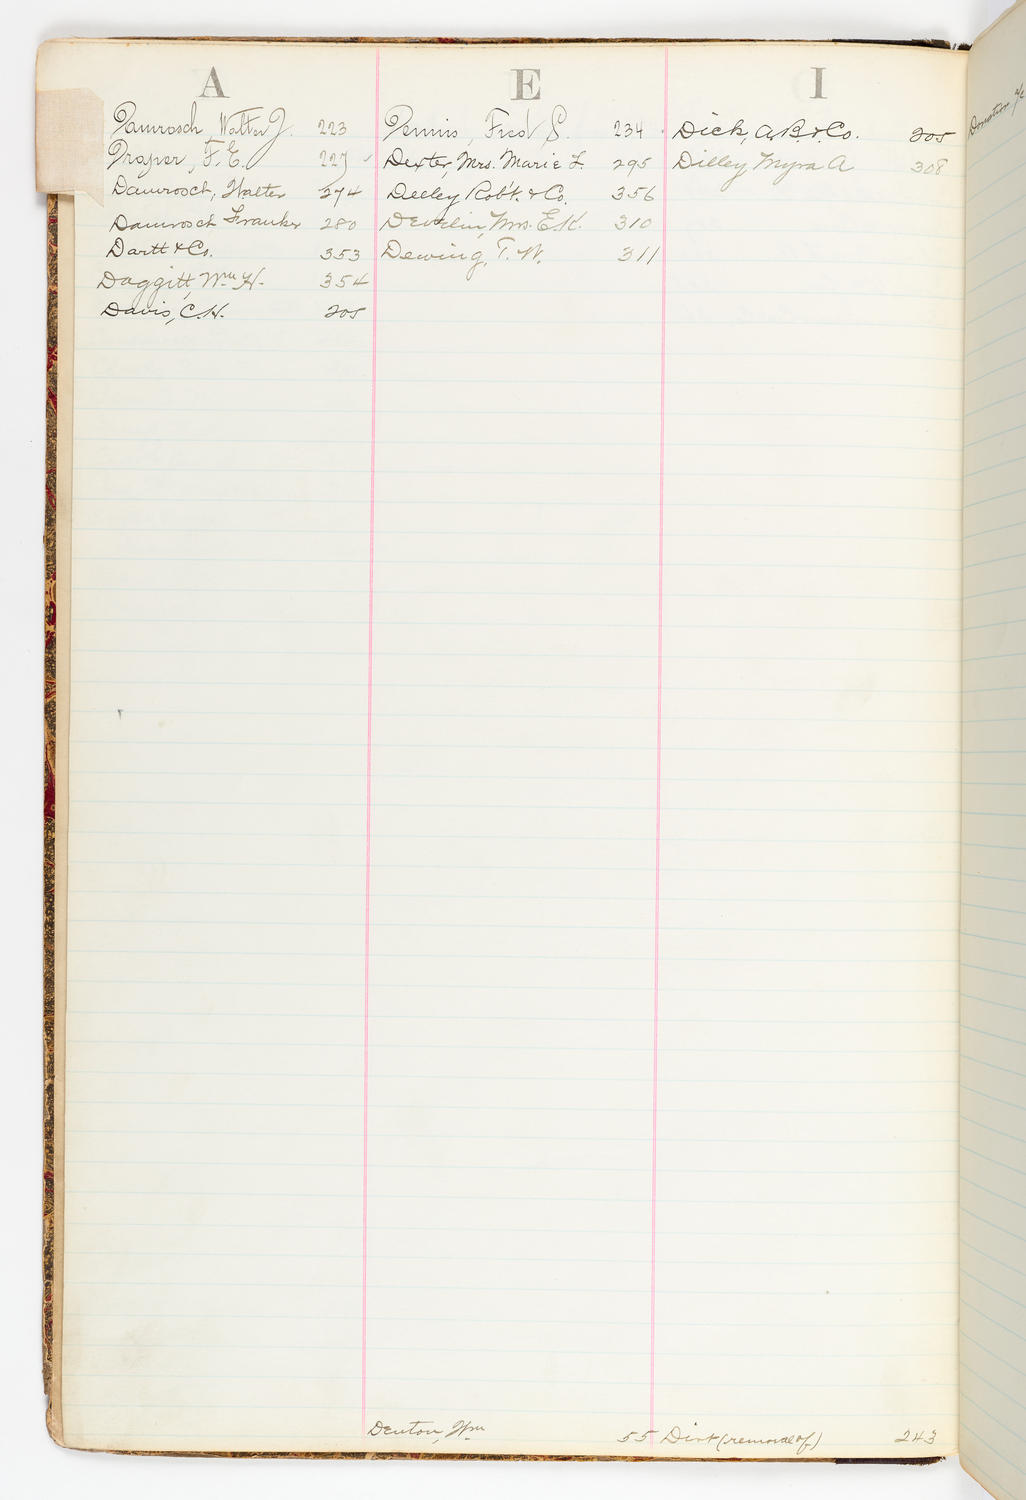 A
Damrosch, Walter J. 223
Draper, F. E. 227
Damrosch, Walter 274
Damrosch Franker 280
Dartt & Co. 353
Daggitt, Wm H. 354
Davis, C. H. 205
E
Dennis, Fred S. 234
Dexter, Mrs. Marie L. 295
Deeley Rob't. & Co. 356
Devlin, Mrs. E. K. 310
Dewing, T. W. 311
Denton, Wm 55
I
Dick, A. B. & Co. 205
Dilley Myra A 308
Dirt (removal of) 243
Donation a/c